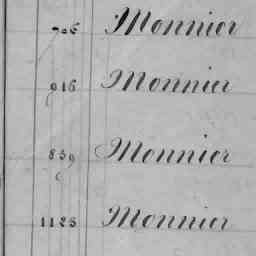 706 Monnier
916 Monnier
859 Monnier
1125 Monnier